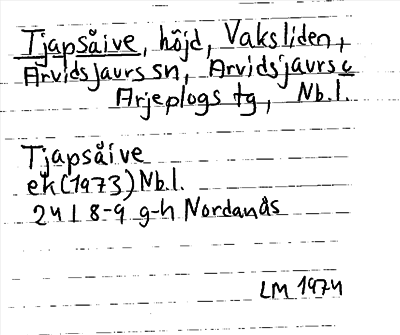 Tjapsåive, höjd, Vaksliden,
Arvidsjaurs sn, Arvidsjaurs o
Arjeplogs tg, Nb.l.
Tjapsåive
ek (1973) Nb.l.
24 I 8-9 g-h Nordanås
LM 1974